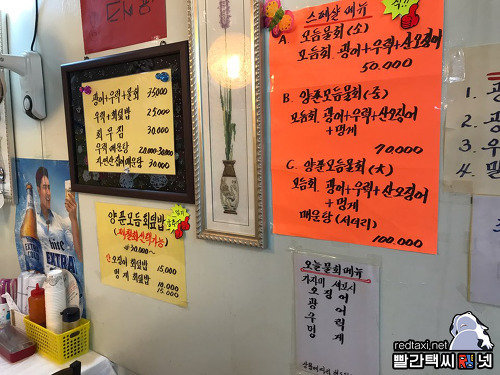 광어+우럭+물회 35000
우럭+회덮밥 25000
회무침 30,000
우럭매운탕 20,000-30,000
자연산잡어매운탕 30,000
양푼모듬회덮밥
20,000~
산오징어회덮밥 15,000
멍게회덮밥 15,000
EXTRA
스페샬 메뉴
A. 모듬물회 (소)
모듬회. 광어+우럭+산오징어
50.000
B. 양푼모듬물회 (중)
모듬회 광어+우럭+산오징어
+멍게
70,000
C. 양푼모듬물회 (大)
모듬회. 광어+우럭+산오징어
+멍게
매운탕 (서더리)
100.000
오늘물회메뉴
가자미 세꼬시
오징어
광어
우럭
멍게
1. 광
2.
3. 우
4.
redtaxi.net
빨간택씨.넷